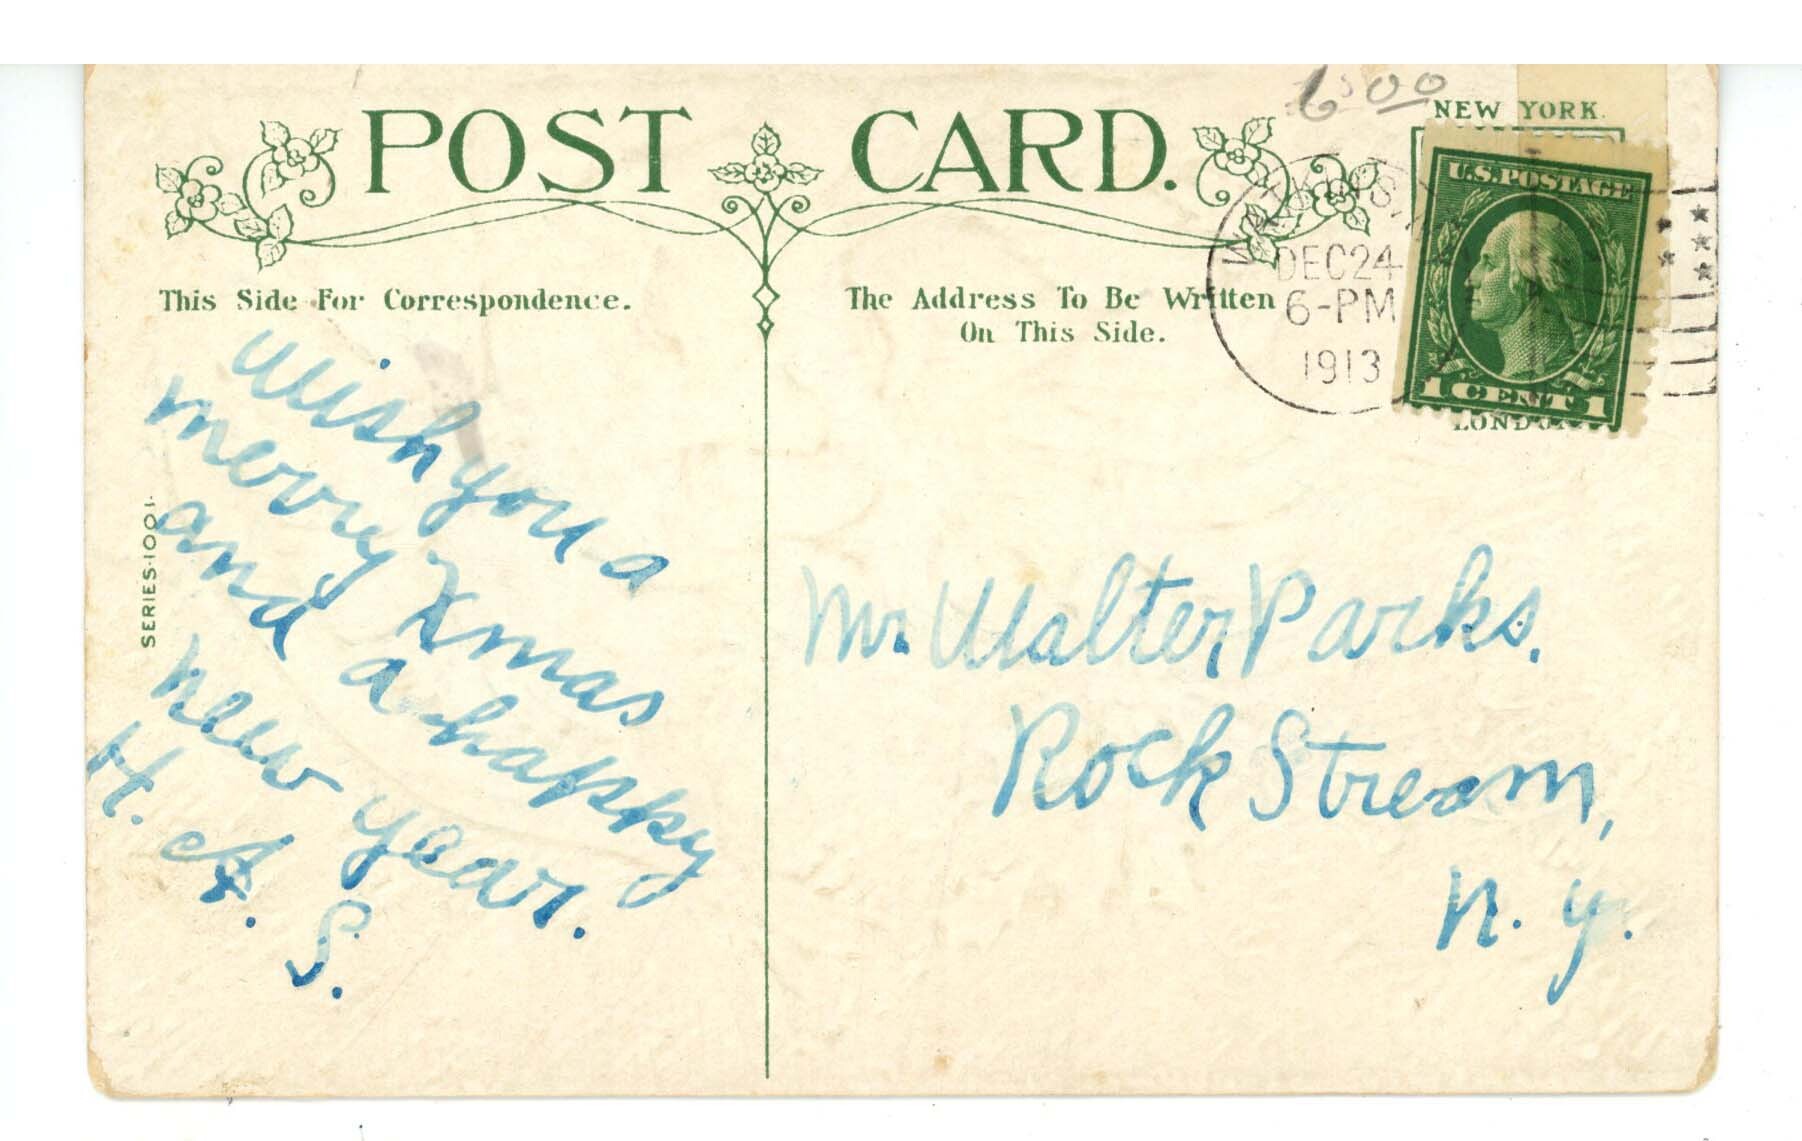 6.00
NEW YORK.
POST CARD.
U.S. POSTAGE
DEC 24
6-PM
1913
1 CENT 1
This Side For Correspondence.
The Address To Be Written
On This Side.
Wish you a
merry Xmas
and a happy
new year.
H. A. S.
SERIES-1001-
Mr Walter Parks.
Rock Stream,
N. Y.